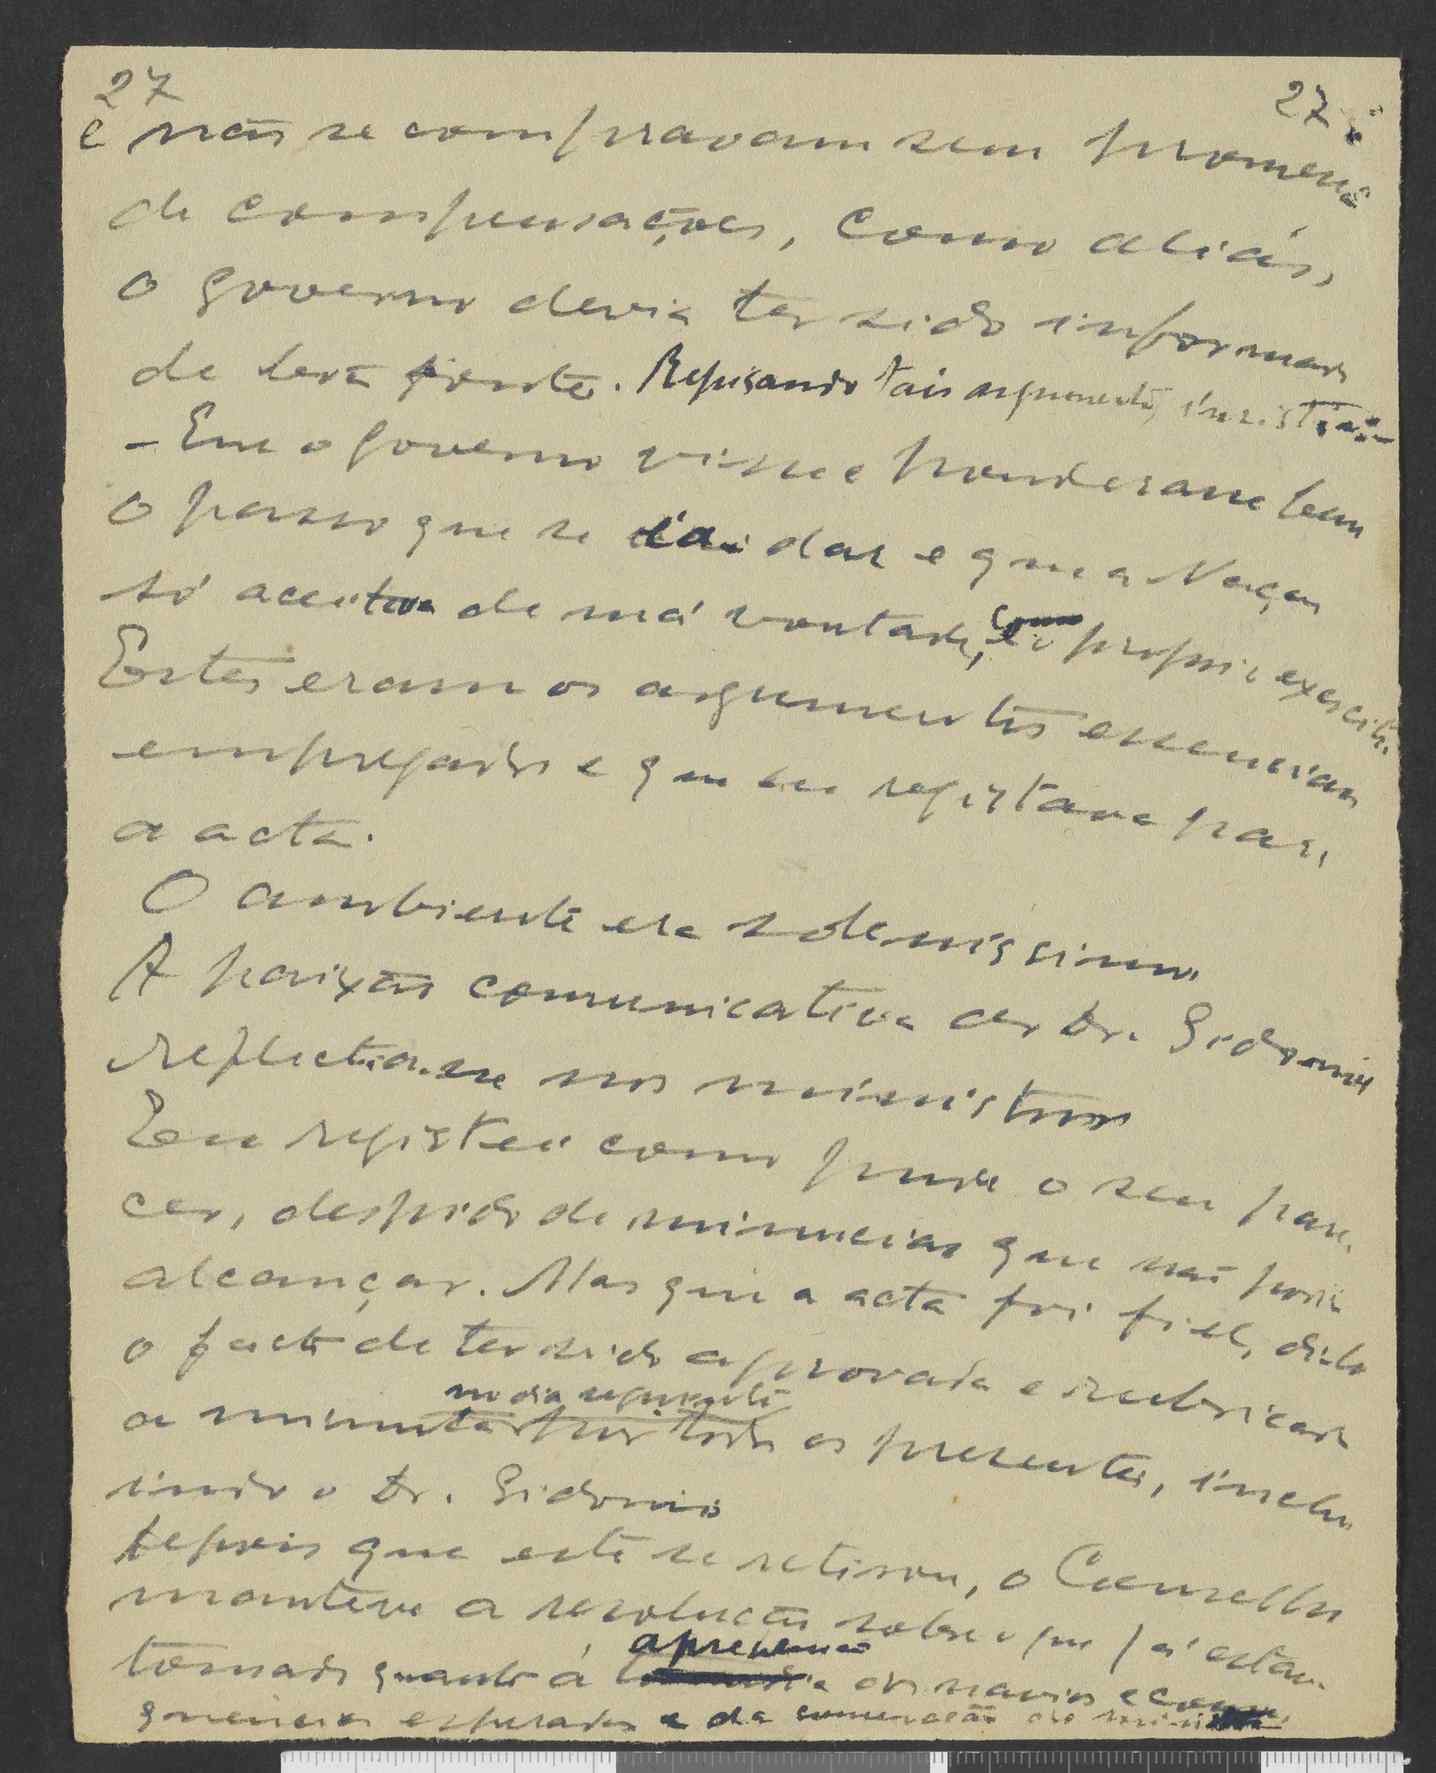 27 27
e não se compravam sem promessa
de compensações, como aliás,
o governo devia ter sido informado
de boa fonte. Repisando tais argumentos, insistia:
- Que o governo visse e ponderasse bem
o passo que se ia dar e que a Nação
só aceitava de má vontade, como o proprio exercito.
Estes eram os argumentos essenciais
empregados e que eu registava para
a acta.
O ambiente era solemnissimo.
A paixão comunicativa do Dr. Sidonio
reflectia-se nos ministros
Eu registei como pude o seu pare-
cer, despido de minucias que não podia
alcançar. Mas que a acta foi fiel, di-lo
o facto de ter sido aprovada e rubricada
no dia seguinte
a minuta por todos os presentes, inclu-
indo o Dr. Sidonio
Depois que este se retirou, o Conselho
manteve a resolução sobre o que já estava
apreensão
tomada quanto á dos navios e conse-
quencias esperadas e da comunicação ao